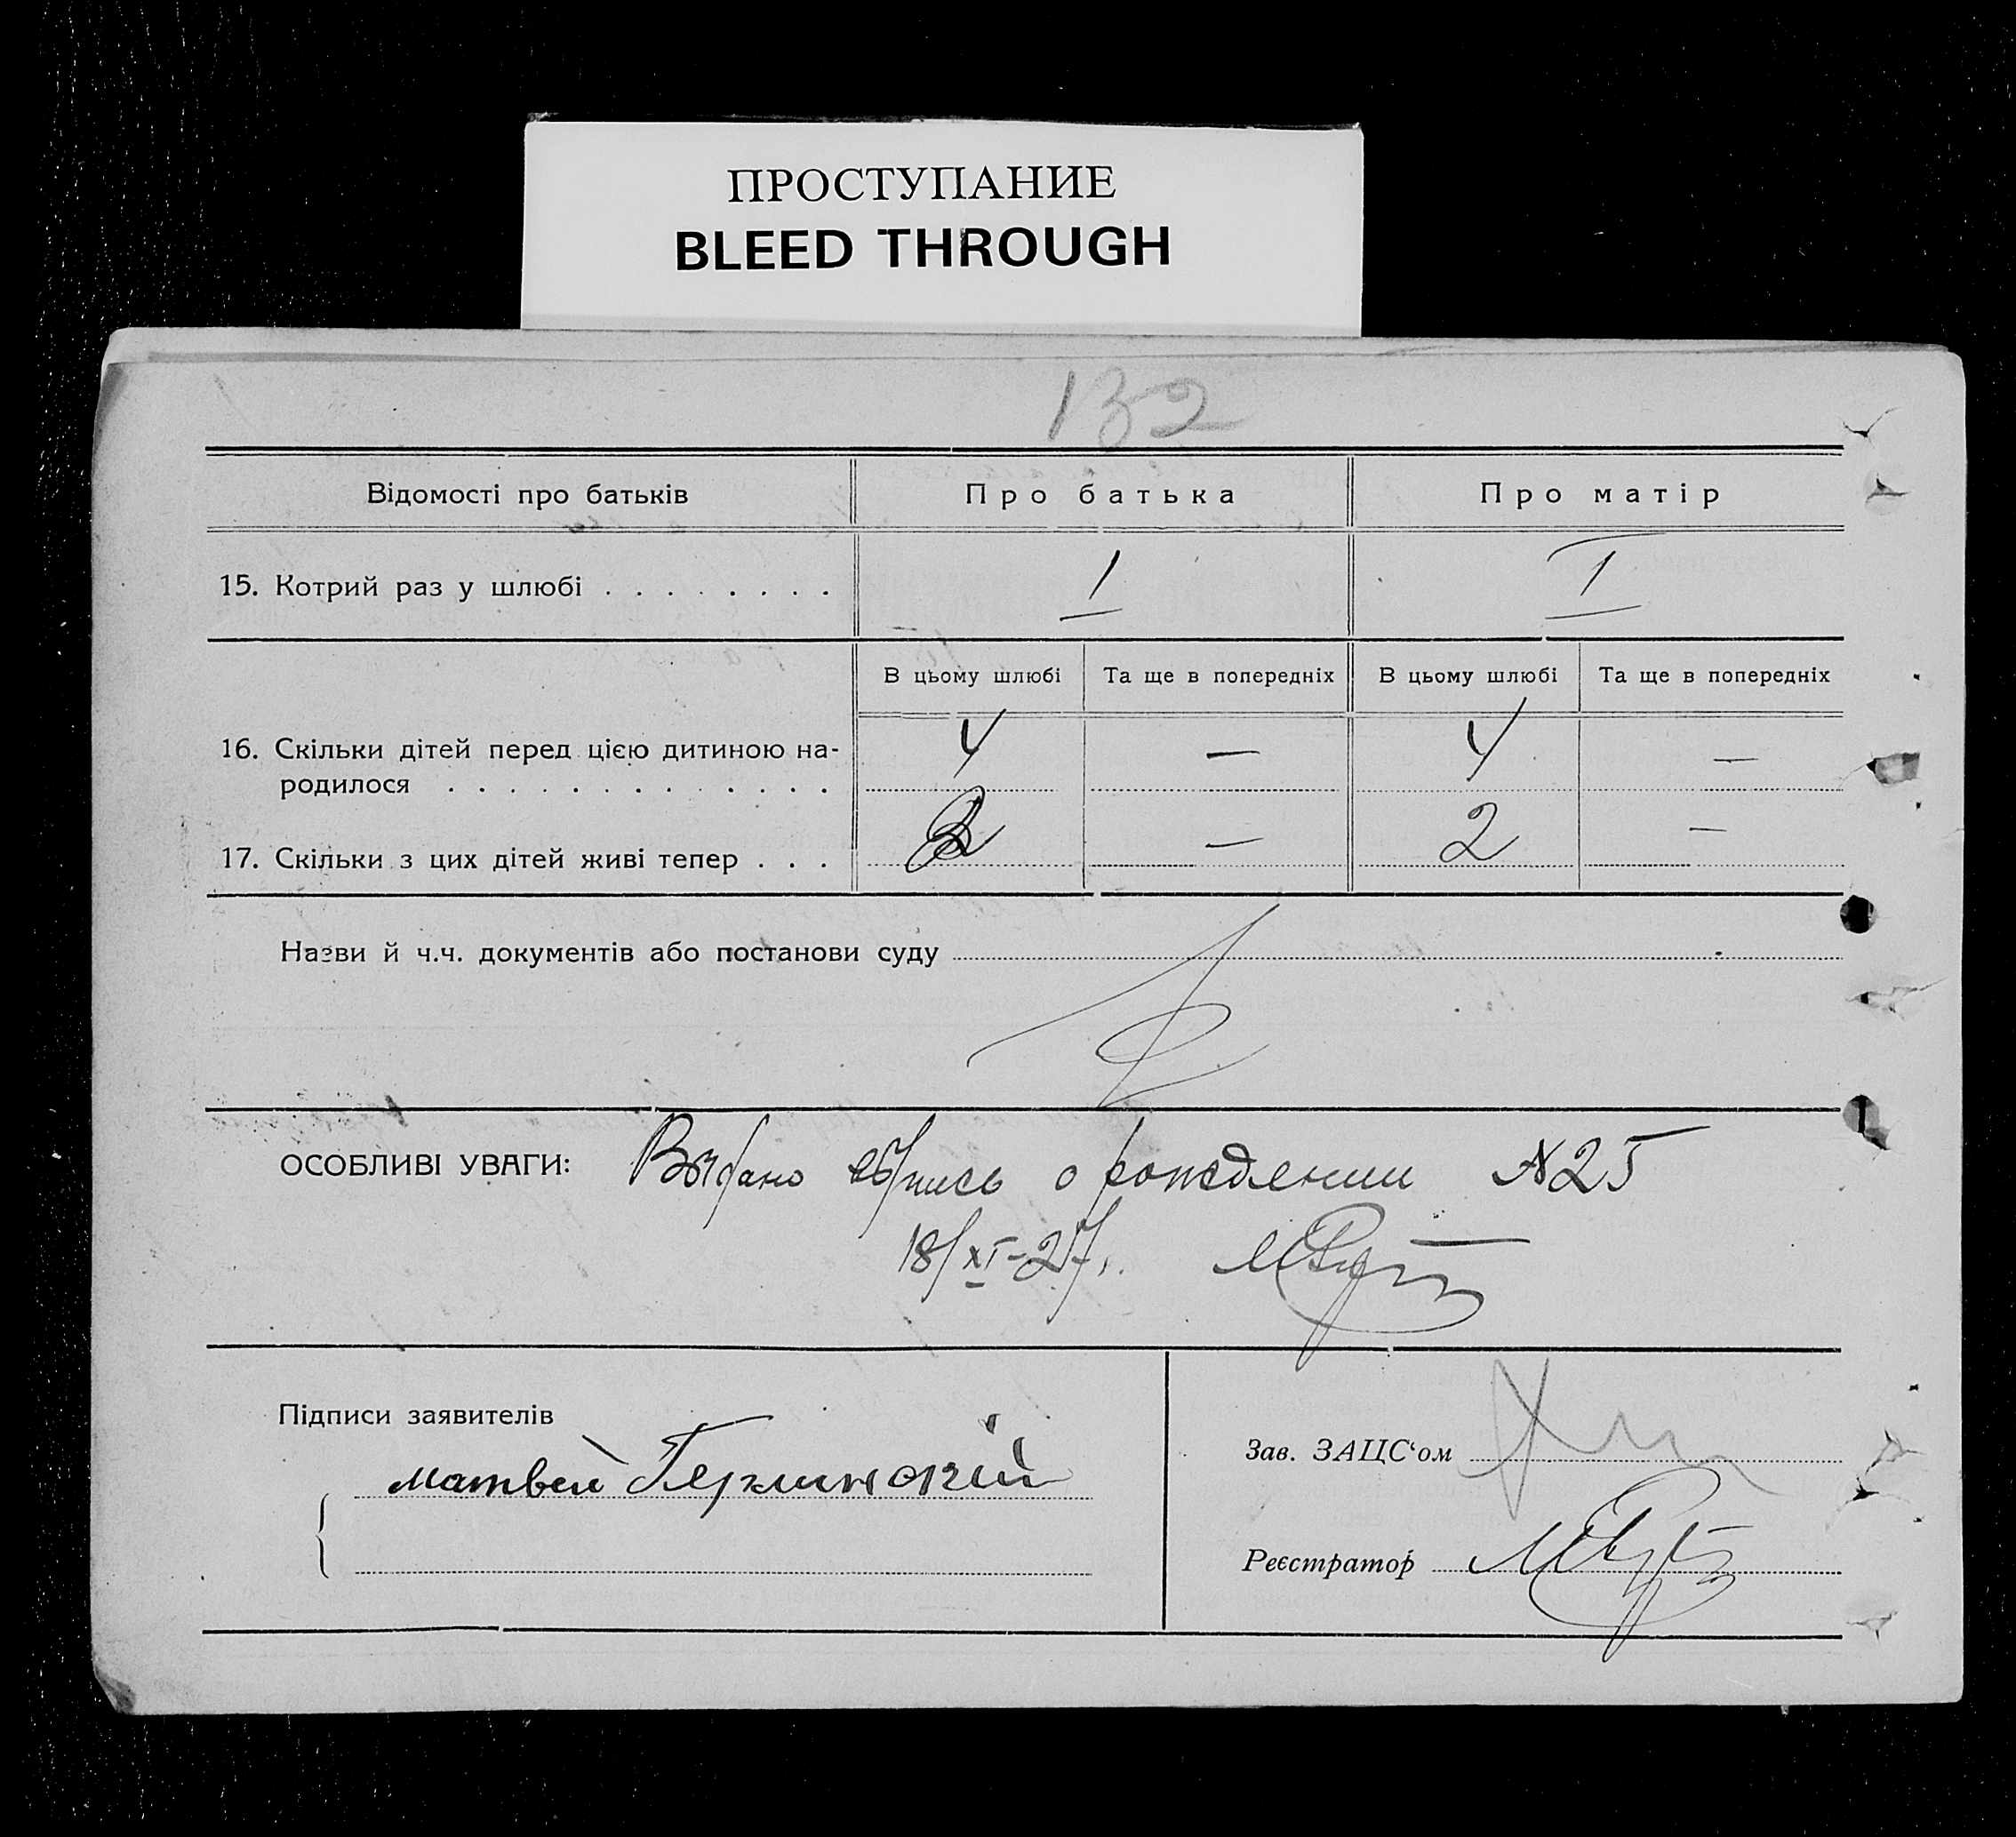 ПРОСТУПАНИЕ
BLEED THROUGH
132
Відомості про батьків Про батька Про матір
15. Котрий раз у шлюбі . . . . . . . . I I
В цьому шлюбі Та ще в попередніх В цьому шлюбі Та ще в попередніх
16. Скільки дітей перед цією дитиною на-
родилося . . . . . . . . . . . . . 4 — 4 —
17. Скільки з цих дітей живі тепер . . . 2 — 2 —
Назви й ч.ч. документів або постанови суду
ОСОБЛИВІ УВАГИ: Выдано о рождении N25
18/XI-27.
Підписи заявителів
Зав. ЗАЦС'ом
матвей
Реєстратор